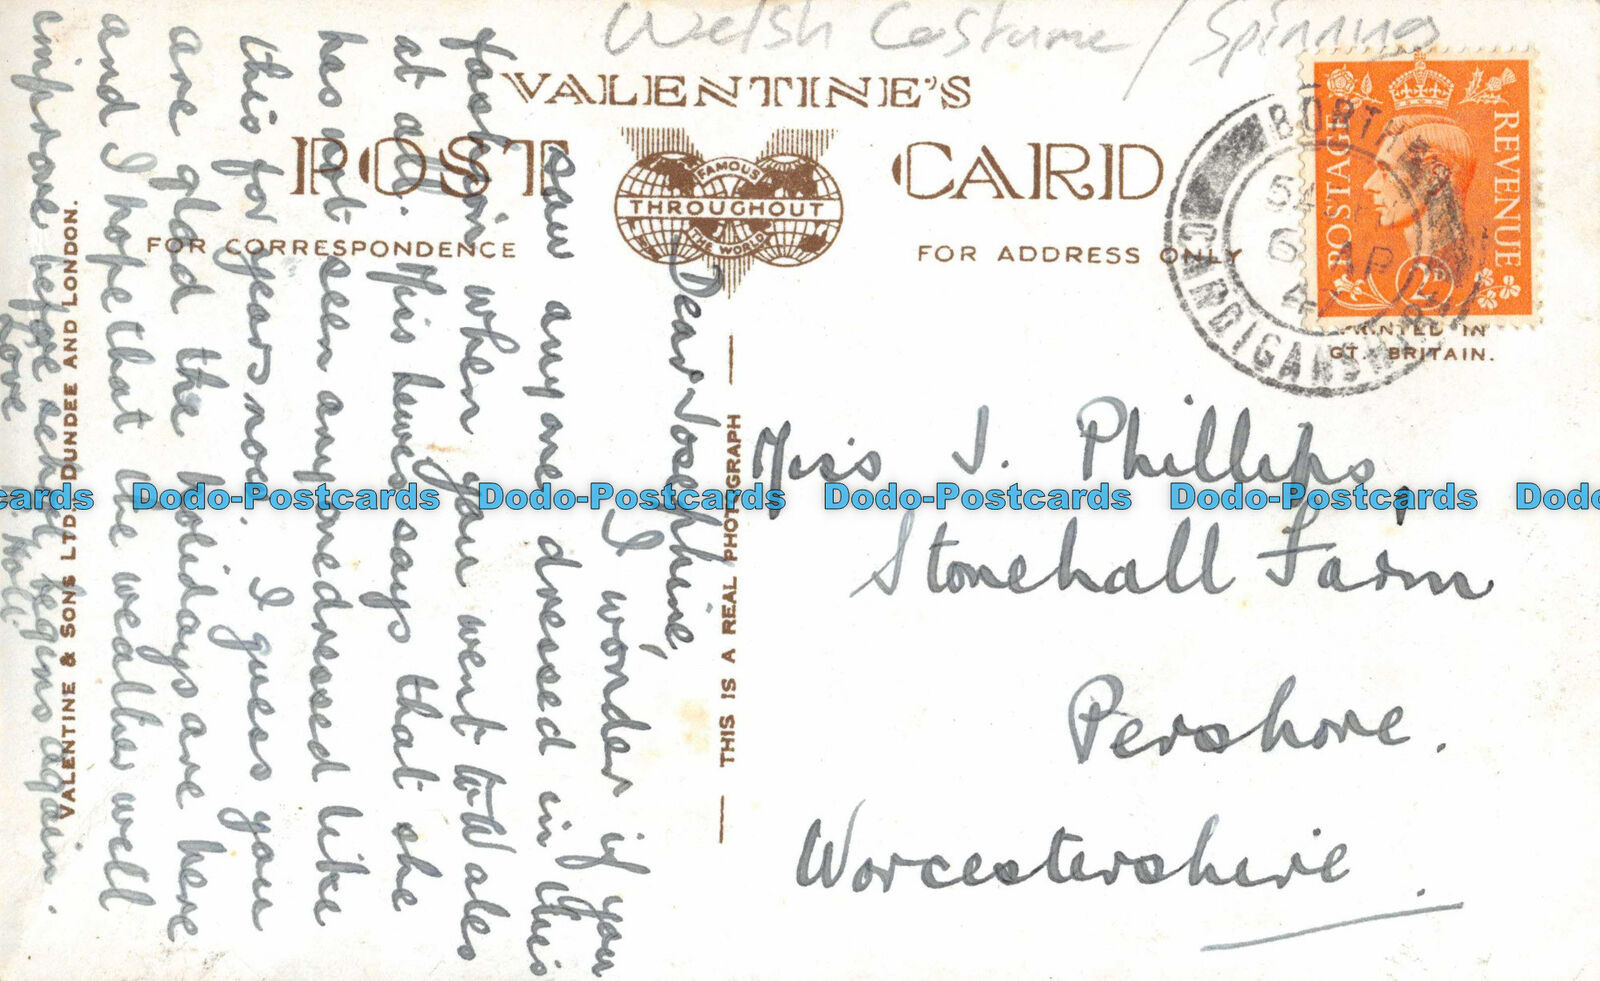 Welsh Costume / Spinning
VALENTINE'S
POST CARD
FAMOUS
THROUGHOUT
THE WORLD
FOR CORRESPONDENCE
FOR ADDRESS ONLY
POSTAGE
REVENUE
2D
BORTH
CARDIGANSHIRE
6 AP
PRINTED IN
GT. BRITAIN.
Dear Josephine,
I wonder if you
saw anyone dressed in this
fashion when you went to Wales
at all. Miss Lewis says that she
has not seen anyone dressed like
this for years now. I guess you
are glad the holidays are here
and I hope that the weather will
improve before school begins again.
Love
THIS IS A REAL PHOTOGRAPH
VALENTINE & SONS LTD. DUNDEE AND LONDON.
Miss J. Phillips,
Stonehall Farm
Pershore.
Worcestershire.
Dodo-Postcards Dodo-Postcards Dodo-Postcards Dodo-Postcards